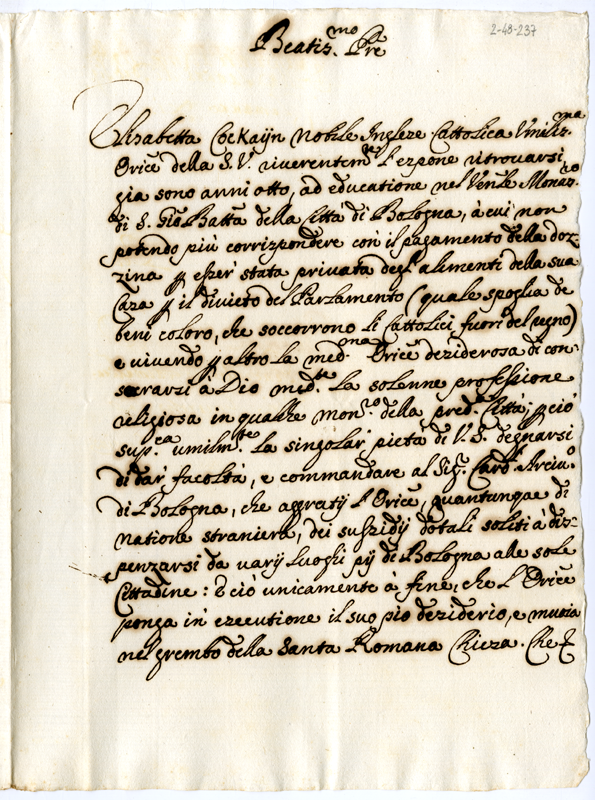 2-48-237
Beatis.mo Pre
Elisabetta Cockaijn Nobile Inglese Cattolica Vmilis.ma
Oric̃e della S. V. riverentem.te l'espone ritrouarsi
gia sono anni otto, ad educatione nel Ven.le Monas.o
di S. Gio Batta della Città di Bologna, à cui non
potendo più corrispondere con il pagamento della doz=
zina p esser stata privata degl'alimenti della sua
Casa p il divieto del Parlamento (quale spoglia de
beni coloro, che soccorrono li Cattolici fuori del regno)
e vivendo p altro la med.ma Oric̃e desiderosa di con=
secrarsi à Dio med.te la solenne professione
religiosa in qualche mon.ro della pred.a Città; p ciò
sup.ca umilm.te la singolar pietà di V. S. degnarsi
di dar facoltà, e commandare al Sig.r Card. Arciu.o
di Bologna, che aggratij l'Oric̃e, quantunque di
natione straniera, dei sussidij dotali soliti à dis=
penzarsi da varij luoghi pij di Bologna alle sole
Cittadine: E ciò unicamente à fine, che l'Oric̃e
ponga in esecutione il suo pio desiderio, e muoia
nel grembo della Santa Romana Chiesa. Che